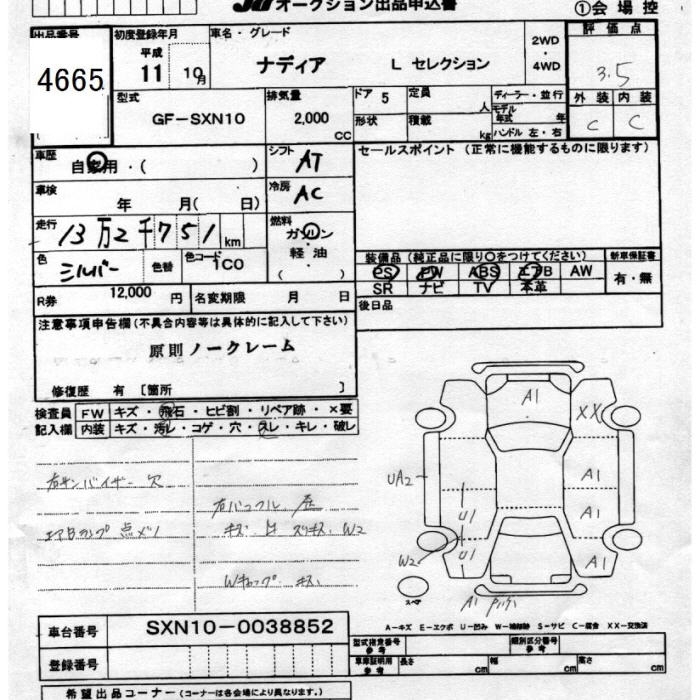 オークション出品申込書
①会場控
出品番号
4665
初度登録年月
平成
11 10月
車名・グレード
ナディア L セレクション
2WD
4WD
評価点
3.5
外装 内装
C C
型式
GF-SXN10
排気量
2,000
CC
ドア 5
形状
定員
人
積載
kg
ディーラー・並行
モデル年式 年
ハンドル 左・右
車歴
自家用・( )
シフト
AT
セールスポイント (正常に機能するものに限ります)
車検
年 月( 日)
冷房
AC
走行
13万2千751km
燃料
ガソリン
・
軽油
( )
色
シルバー
色替
色コード
1C0
装備品 (純正品に限り○をつけてください)
PS PW ABS エアB AW
SR ナビ TV 本革
新車保証書
有・無
R券 12,000円
名変期限 月 日
後日品
注意事項申告欄(不具合内容等は具体的に記入して下さい)
原則ノークレーム
修復歴 有 [箇所 ]
検査員
記入欄
FW キズ・飛石・ヒビ割・リペア跡・×要
内装 キズ・汚レ・コゲ・穴・スレ・キレ・破レ
右サンバイザー穴
エアBランプ 点メツ
W2
A1
XX
UA2
A1
A1
A1
U1
U1
W2
スペア
A1
A-キズ E-エクボ U-凹み W-補修跡 S-サビ C-腐食 XX-交換済
車台番号
SXN10-0038852
登録番号
型式指定番号
参考
類別区分番号
参考
車庫証明用
参考
長さ cm
幅 cm
高さ cm
希望出品コーナー (コーナーは各会場により異なります。)